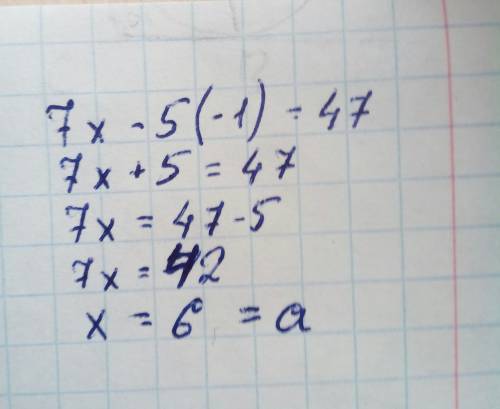 7x - 5(-1) = 47
7x + 5 = 47
7x = 47-5
7x = 42
x = 6 = a